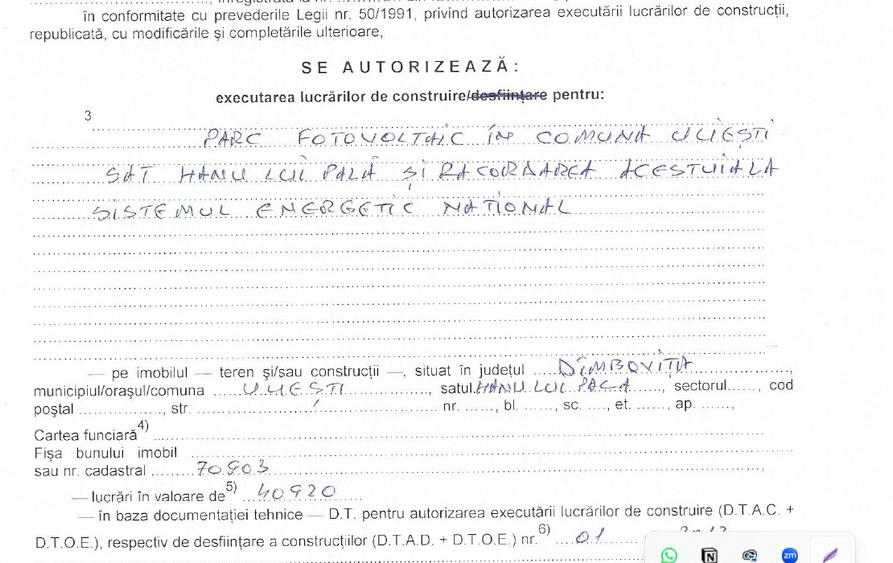 în conformitate cu prevederile Legii nr. 50/1991, privind autorizarea executării lucrărilor de construcții,
republicată, cu modificările și completările ulterioare,
SE AUTORIZEAZĂ:
executarea lucrărilor de construire/desființare pentru:
3
PARC FOTOVOLTAIC ÎN COMUNA ULIEȘTI
SAT HANU LUI PALĂ ȘI RACORDAREA ACESTUIA LA
SISTEMUL ENERGETIC NAȚIONAL
— pe imobilul — teren și/sau construcții —, situat în județul DÎMBOVIȚA,
municipiul/orașul/comuna ULIEȘTI, satul HANU LUI PALA, sectorul......, cod
poștal ................, str. ................ nr. ......, bl. ......, sc. ..., et. ......, ap. ......,
Cartea funciară 4)
Fișa bunului imobil
sau nr. cadastral 70903
— lucrări în valoare de 5) 40920
— în baza documentației tehnice — D.T. pentru autorizarea executării lucrărilor de construire (D.T.A.C. +
D.T.O.E.), respectiv de desființare a construcțiilor (D.T.A.D. + D.T.O.E.) nr. 6) 01
zm